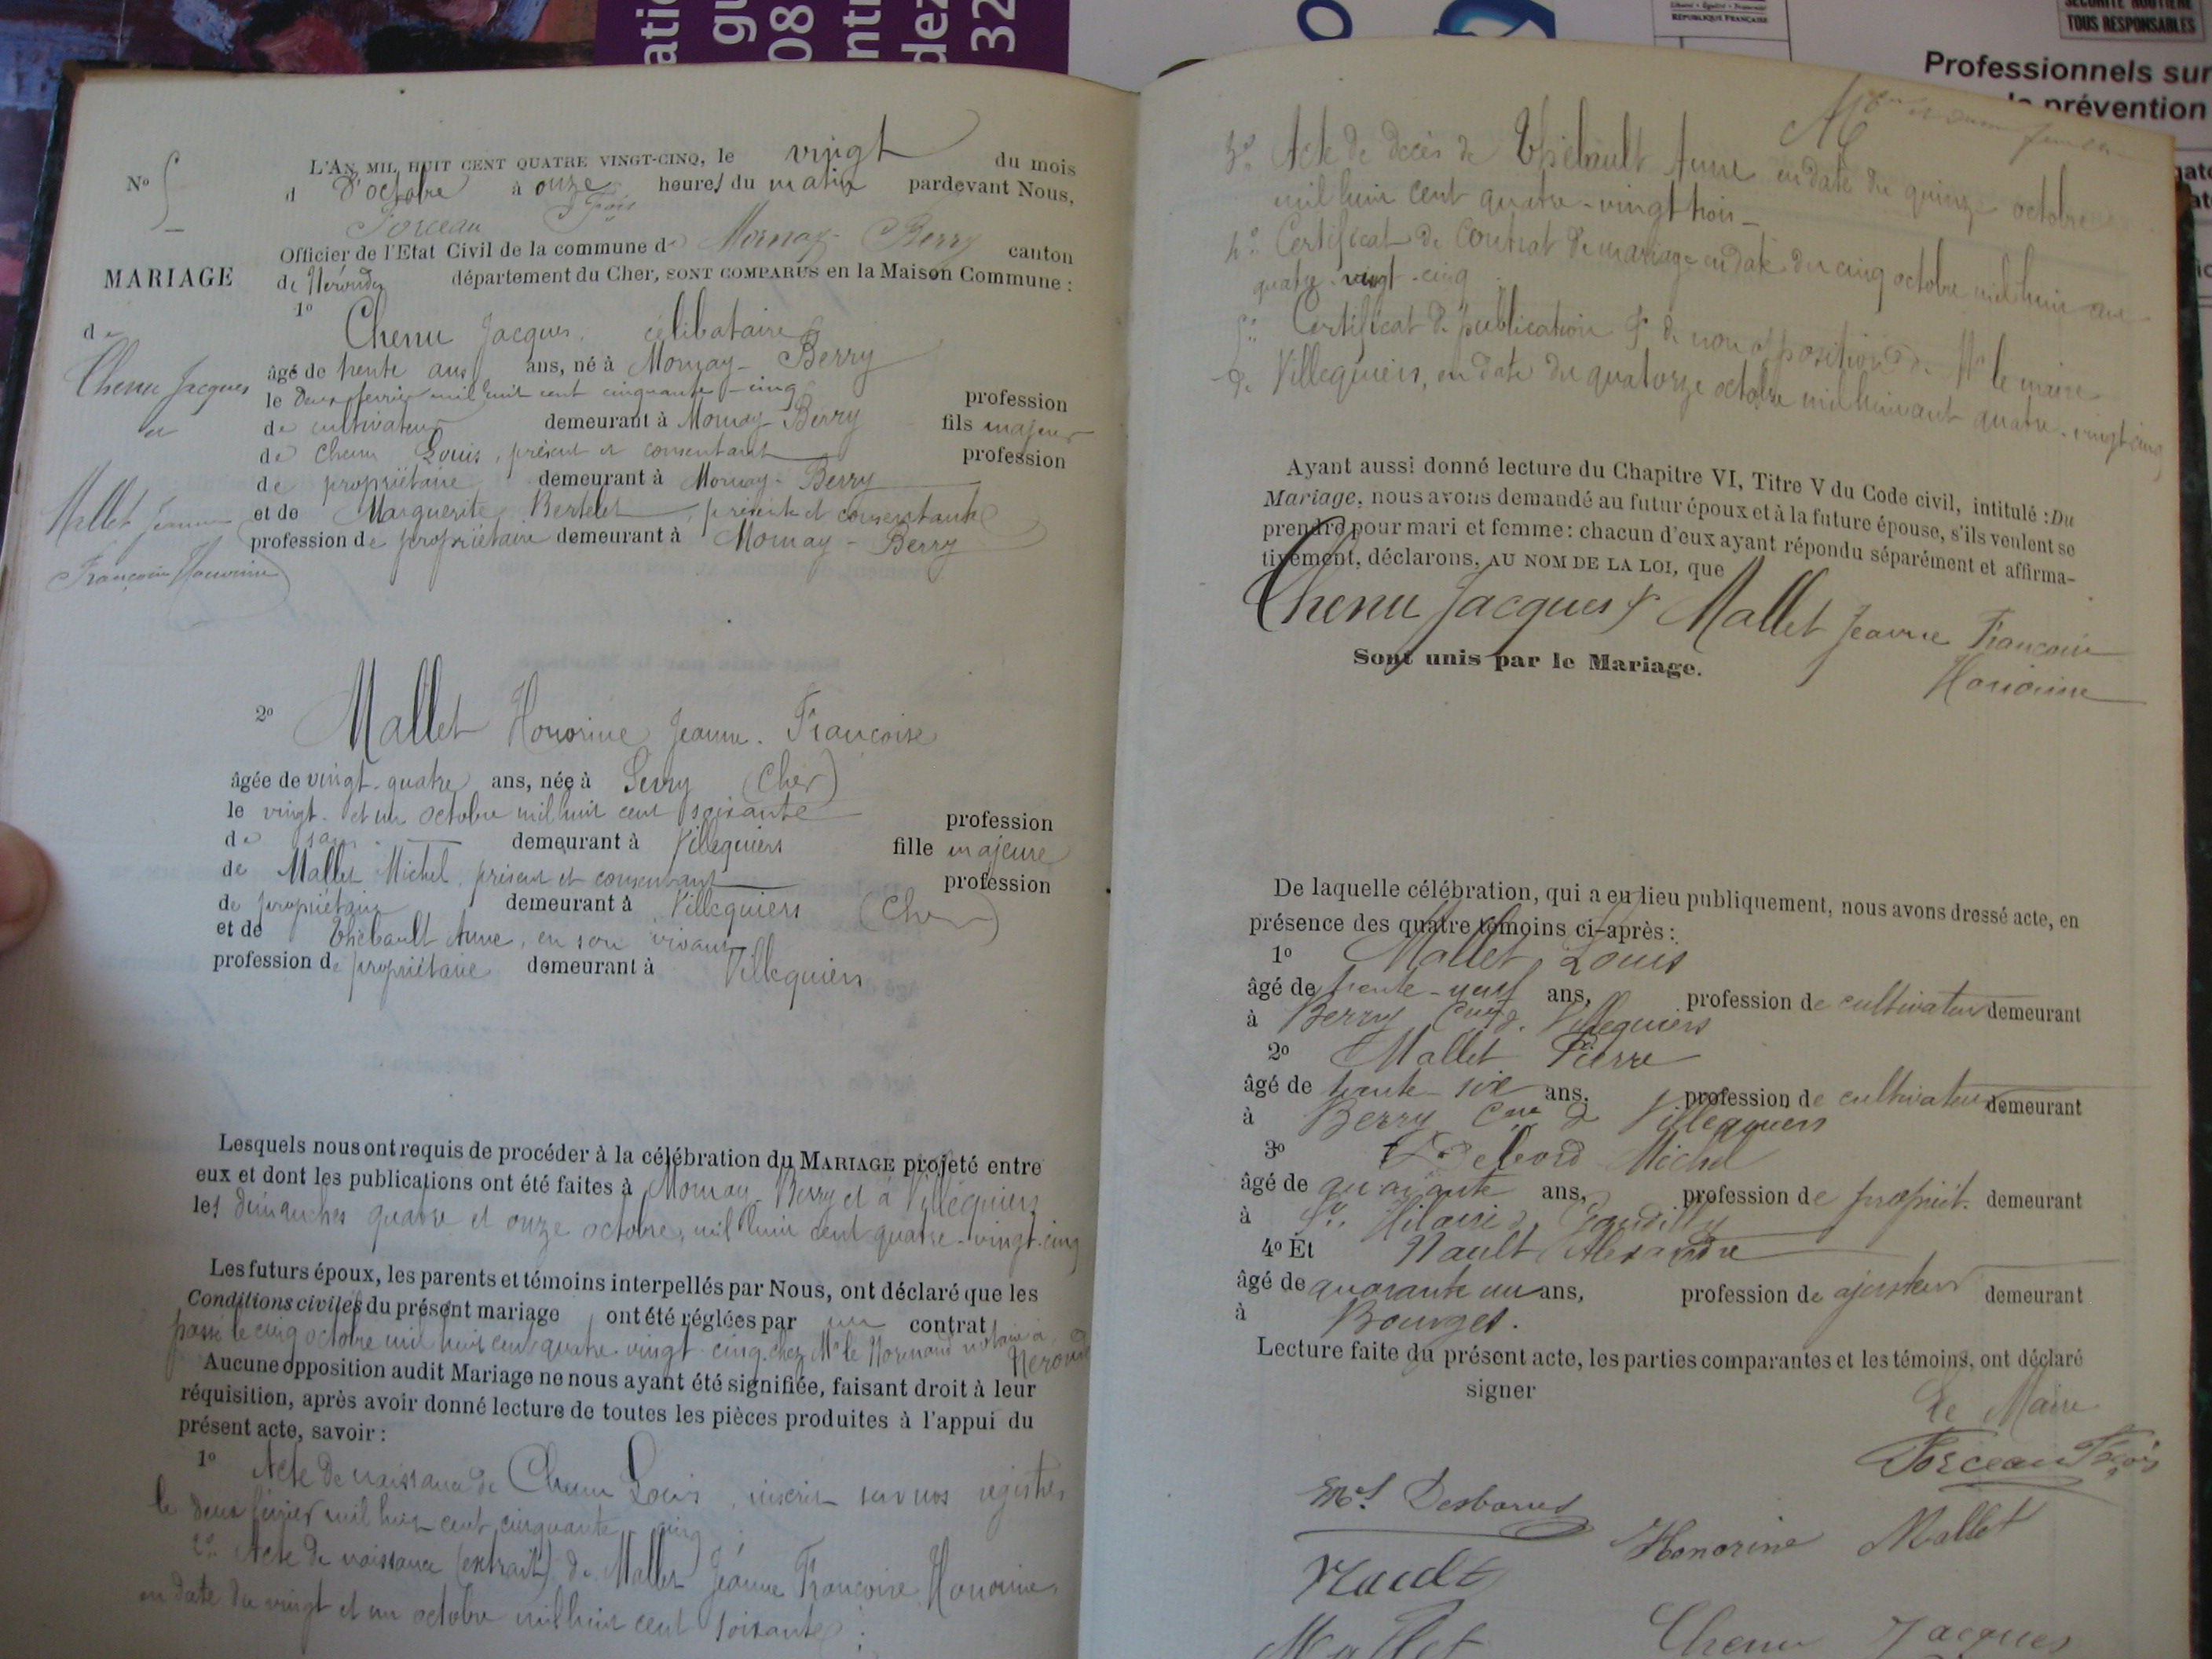 atic
gu
08
ntr
dez
32
RÉPUBLIQUE FRANÇAISE
SÉCURITÉ ROUTIÈRE
TOUS RESPONSABLES
Professionnels sur
prévention
No 5
MARIAGE
de
Chenu Jacques
et
Mallet Jeanne
Françoise Honorine
L'AN MIL HUIT CENT QUATRE VINGT-CINQ, le vingt du mois
d d'octobre à onze heures du matin pardevant Nous,
Forceau Fçois
Officier de l'Etat Civil de la commune de Mornay-Berry canton
de Nérondes département du Cher, SONT COMPARUS en la Maison Commune :
1o Chenu Jacques, célibataire
âgé de trente ans ans, né à Mornay-Berry
le deux février mil huit cent cinquante-cinq profession
de cultivateur demeurant à Mornay-Berry fils majeur
de Chenu Louis, présent et consentant profession
de propriétaire demeurant à Mornay-Berry
et de Marguerite Bertelet, présente et consentante
profession de propriétaire demeurant à Mornay-Berry
2o Mallet Honorine Jeanne Françoise
âgée de vingt-quatre ans, née à Sevry (Cher)
le vingt et un octobre mil huit cent soixante profession
de sans demeurant à Villequiers fille majeure
de Mallet Michel présent et consentant profession
de propriétaire demeurant à Villequiers (Cher)
et de Thébault Anne, en son vivant
profession de propriétaire demeurant à Villequiers
Lesquels nous ont requis de procéder à la célébration du MARIAGE projeté entre
eux et dont les publications ont été faites à Mornay-Berry et à Villequiers
les dimanches quatre et onze octobre, mil huit cent quatre-vingt-cinq
Les futurs époux, les parents et témoins interpellés par Nous, ont déclaré que les
Conditions civiles du présent mariage ont été réglées par un contrat
passé le cinq octobre mil huit cent quatre-vingt-cinq chez Me le Normand notaire à Nérondes
Aucune opposition audit Mariage ne nous ayant été signifiée, faisant droit à leur
réquisition, après avoir donné lecture de toutes les pièces produites à l'appui du
présent acte, savoir :
1o Acte de naissance de Chenu Louis, inscrit sur nos registres
le deux février mil huit cent cinquante-cinq
2o Acte de naissance (extrait) de Mallet Jeanne Françoise Honorine,
en date du vingt et un octobre mil huit cent soixante ;
3o Acte de décès de Thébault Anne en date du quinze octobre
mil huit cent quatre-vingt trois
4o Certificat de contrat de mariage en date du cinq octobre mil huit cent
quatre-vingt-cinq
5o Certificat de publication & de non opposition de Mr le maire
de Villequiers, en date du quatorze octobre mil huit cent quatre-vingt-cinq
Ayant aussi donné lecture du Chapitre VI, Titre V du Code civil, intitulé : Du
Mariage, nous avons demandé au futur époux et à la future épouse, s'ils veulent se
prendre pour mari et femme : chacun d'eux ayant répondu séparément et affirma-
tivement, déclarons, AU NOM DE LA LOI, que
Chenu Jacques & Mallet Jeanne Françoise
Honorine
Sont unis par le Mariage.
De laquelle célébration, qui a eu lieu publiquement, nous avons dressé acte, en
présence des quatre témoins ci-après :
1o Mallet Louis
âgé de trente-neuf ans, profession de cultivateur demeurant
à Berry Cne de Villequiers
2o Mallet Pierre
âgé de trente-six ans, profession de cultivateur demeurant
à Berry Cne de Villequiers
3o Michel
âgé de quarante ans, profession de propriét. demeurant
à St. Hilaire de Gondilly
4o Et Nault Alexandre
âgé de quarante un ans, profession de ajusteur demeurant
à Bourges.
Lecture faite du présent acte, les parties comparantes et les témoins, ont déclaré
signer
Le Maire
Forceau Fçois
Desbords
Honorine Mallet
Nault
Mallet
Chenu Jacques